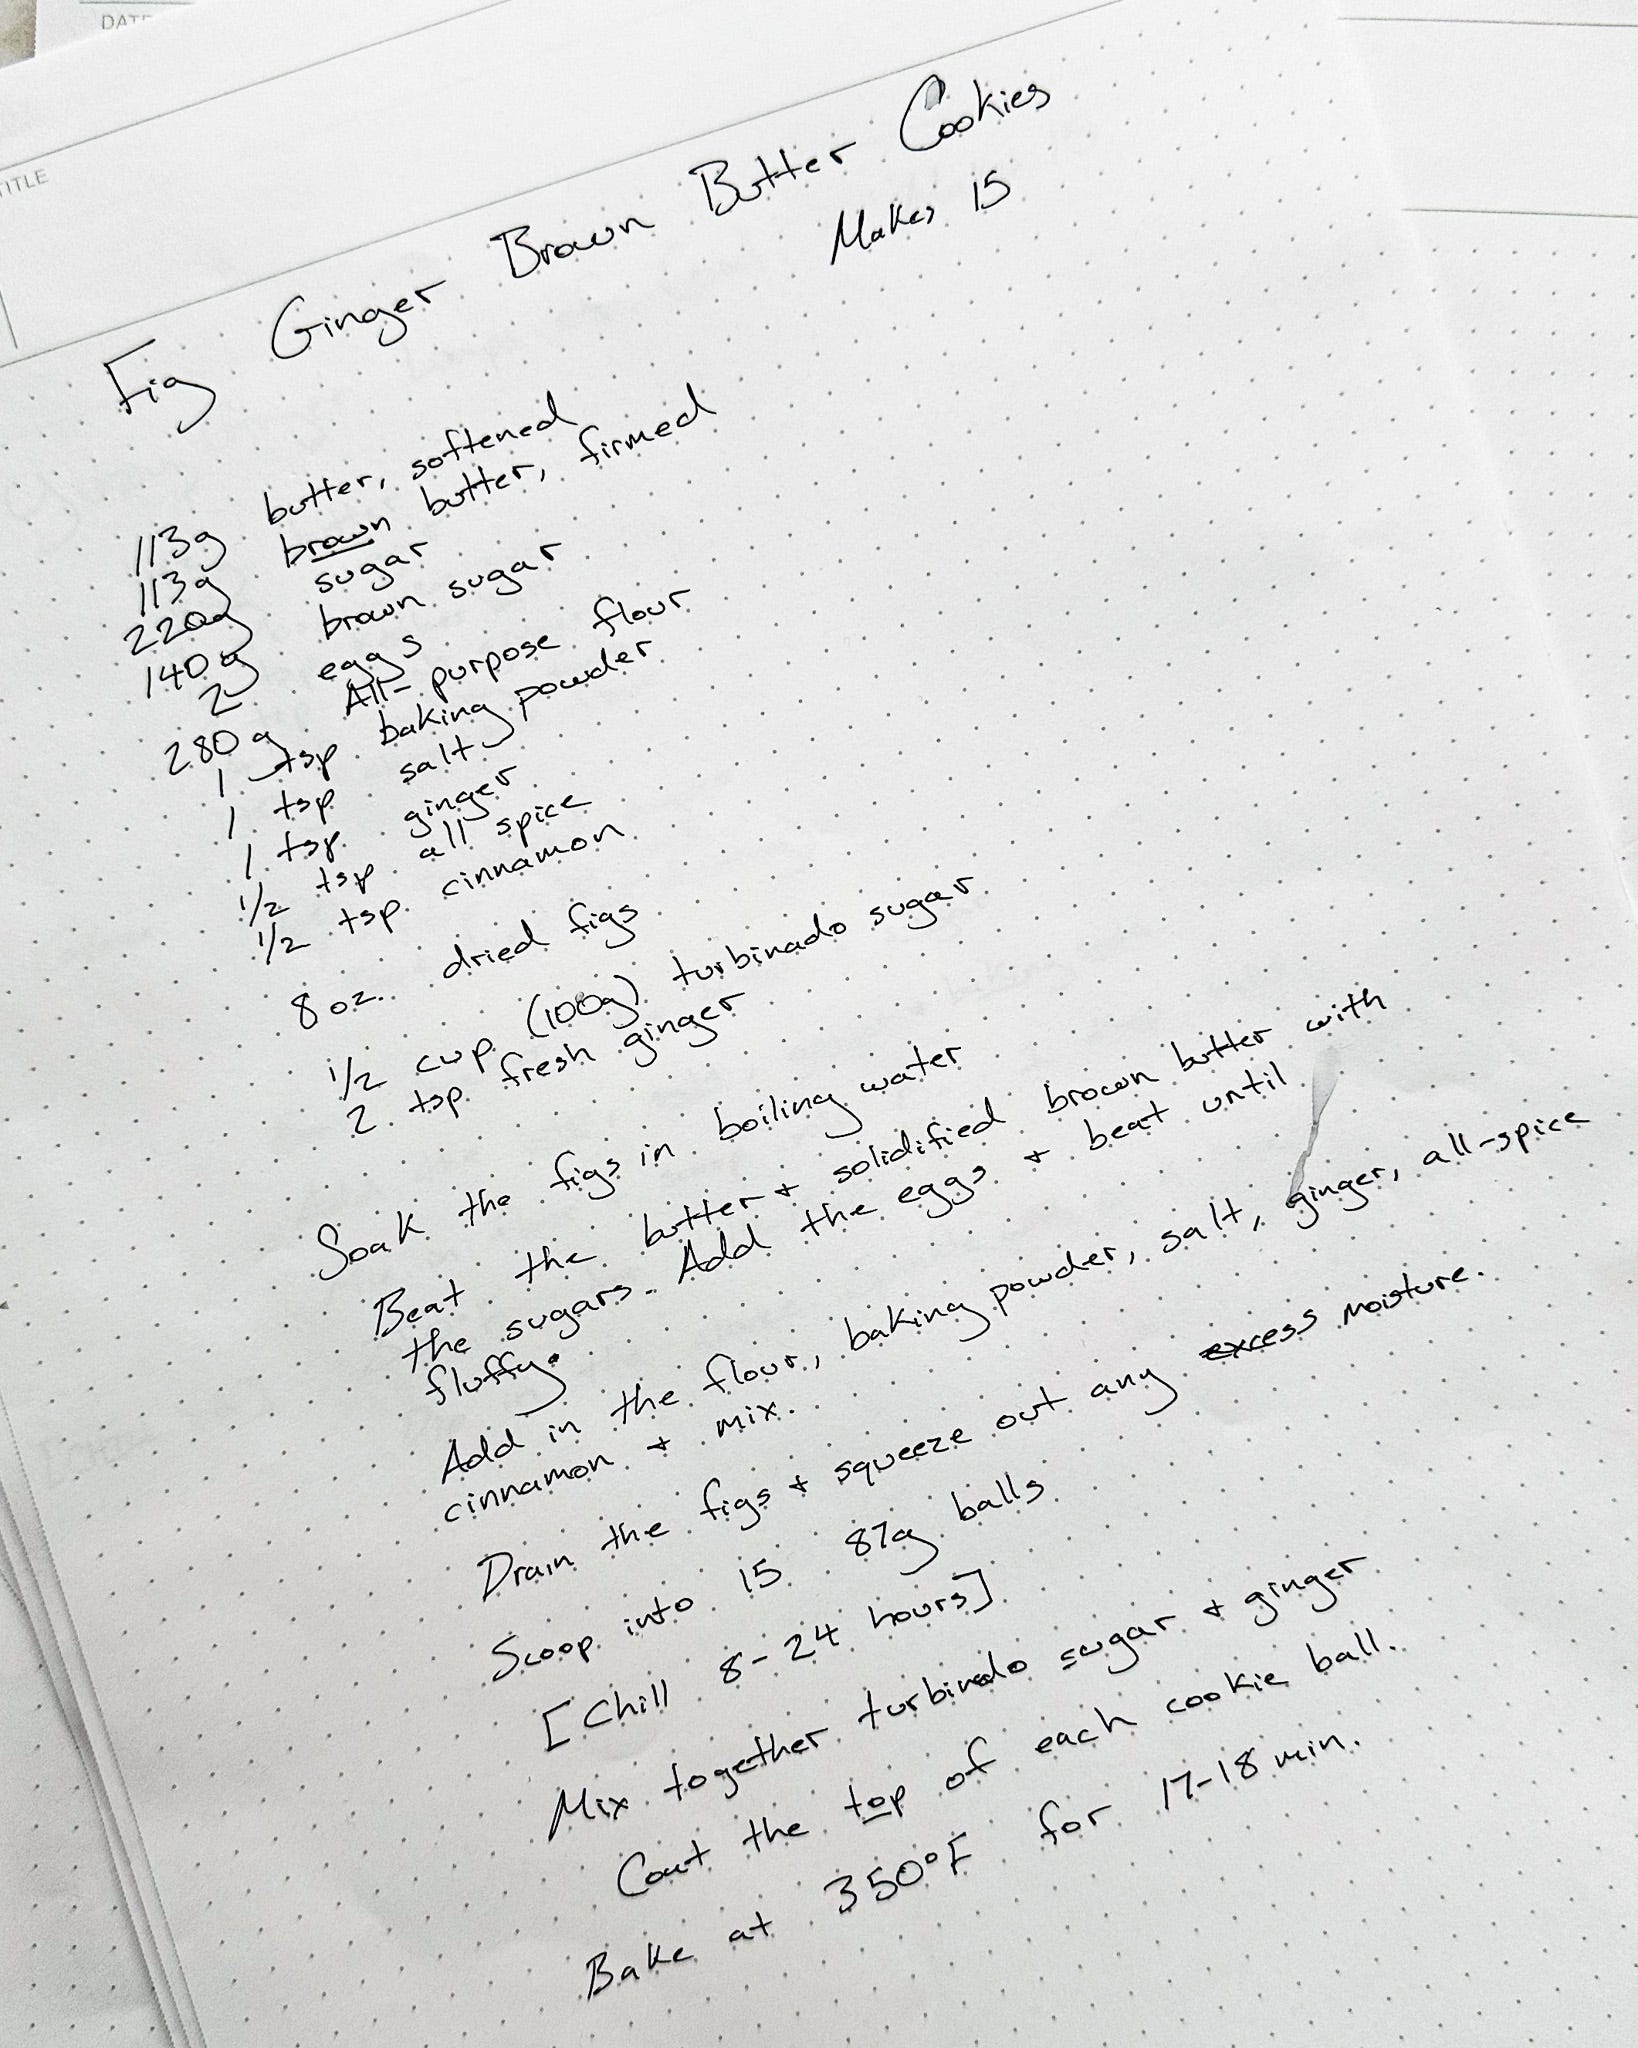 DATE
TITLE
Fig Ginger Brown Butter Cookies
Makes 15
113g butter, softened
113g brown butter, firmed
220g sugar
140g brown sugar
2 eggs
280g All-purpose flour
1 tsp baking powder
1 tsp salt
1 tsp ginger
1/2 tsp all spice
1/2 tsp cinnamon
8 oz. dried figs
1/2 cup (100g) turbinado sugar
2 tsp fresh ginger
Soak the figs in boiling water
Beat the butter + solidified brown butter with
the sugars. Add the eggs + beat until
fluffy.
Add in the flour, baking powder, salt, ginger, all-spice
cinnamon + mix.
Drain the figs + squeeze out any excess moisture.
Scoop into 15 87g balls
[Chill 8-24 hours]
Mix together turbinado sugar + ginger
Coat the top of each cookie ball.
Bake at 350°F for 17-18 min.